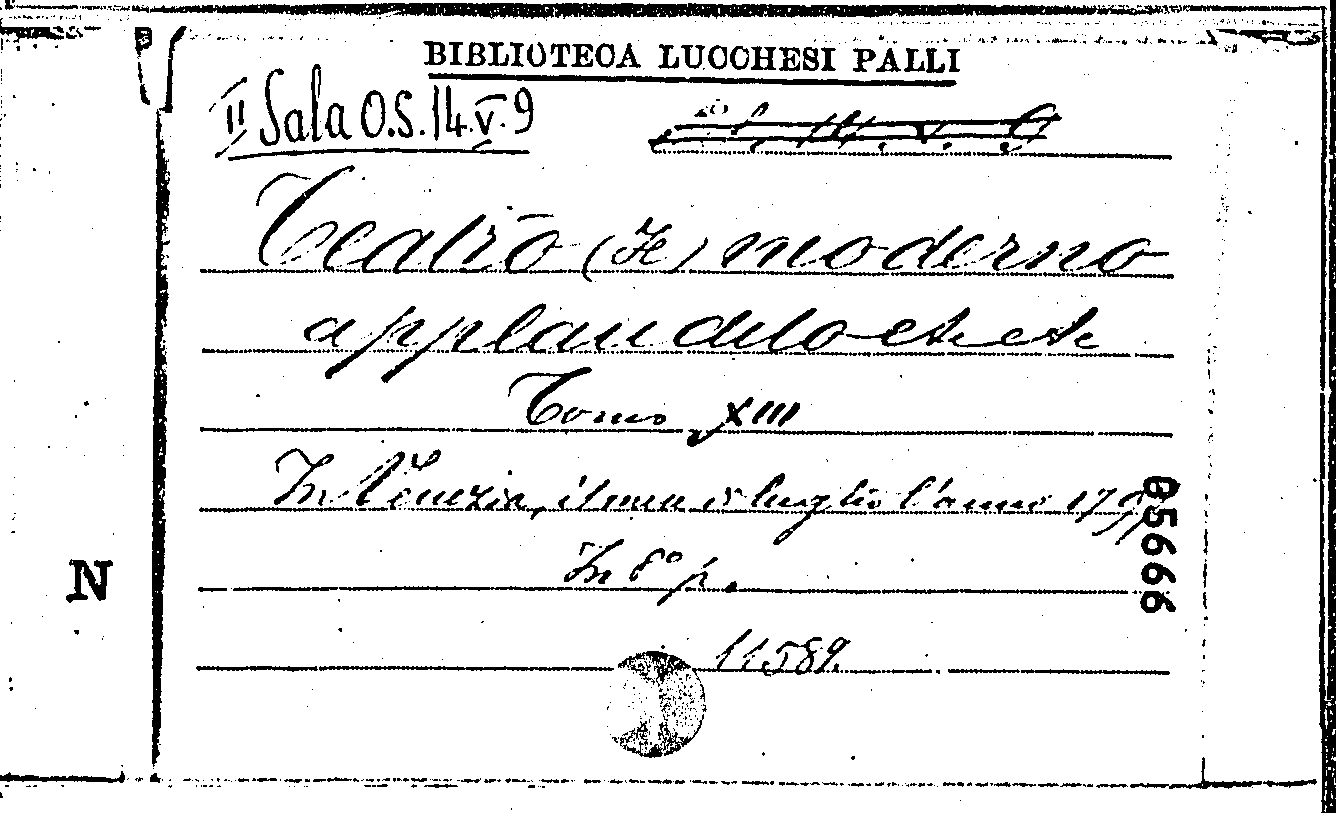 BIBLIOTECA LUCCHESI PALLI
II Sala O.S. 14. V. 9
Teatro (Il) moderno
applaudito etc etc
Tomo XIII
In Venezia, il mese di luglio l'anno 1797
In 8° p.
11589.
N
85666